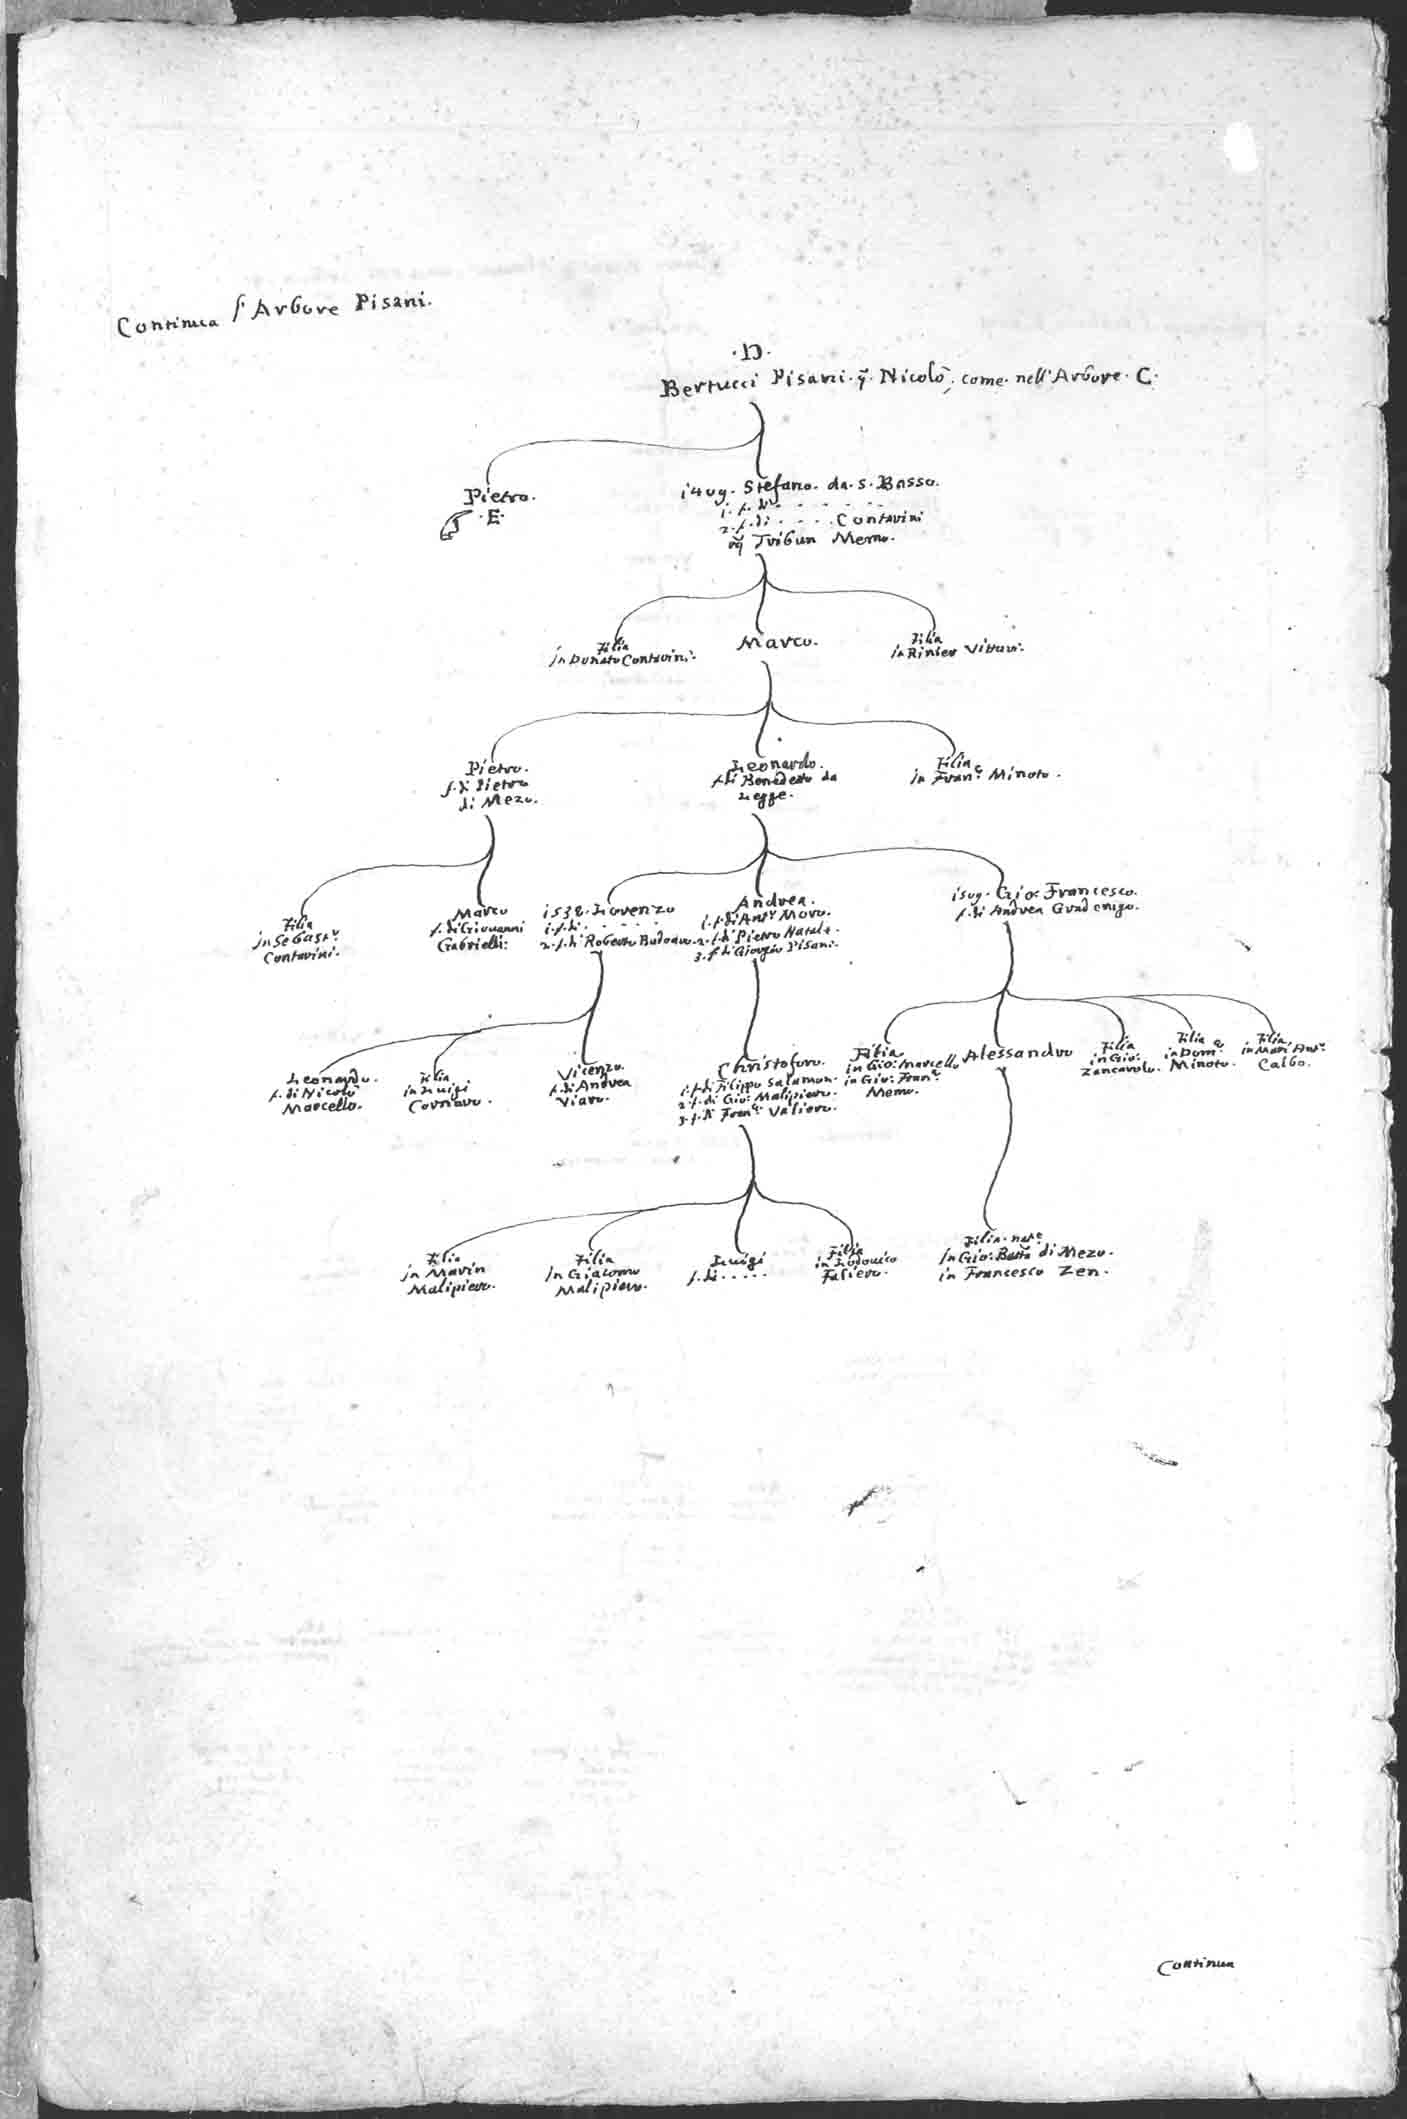 Continua l'Arbore Pisani.
·D·
Bertucci Pisani· q̃· Nicolò, come nell'Arbore· C·
Pietro.
·E·
1409· Stefano· da· S· Basso.
1· f· di · · · · ·
2· f· di · · · · Contarini
q̃ Tribun Memo.
Filia
in Donato Contarini.
Marco.
Filia
in Rinier Vitturi.
Pietro.
f· di Pietro
di Mezo.
Leonardo.
f· di Benedetto da
Legge.
Filia
in Franc.º Minoto.
Filia
in Sebast.º
Contarini.
Marco
f· di Giovanni
Gabrielli:
1532· Lorenzo
1· f· di · · · · ·
2· f· di Roberto Badoaro.
Andrea.
1· f· di Ant.º Moro.
2· f· di Pietro Natale.
3· f· di Giorgio Pisani.
1509· Gio: Francesco.
f· di Andrea Gradenigo.
Leonardo.
f· di Nicolò
Marcello.
Filia
in Luigi
Cornaro.
Vicenzo.
f· di Andrea
Viaro.
Christoforo.
1· f· di Filippo Salamon.
2· f· di Gio: Malipiero.
3· f· di Franc.º Valiero.
Filia
in Gio: Marcello
in Gio: Franc.º
Memo.
Alessandro
Filia
in Gio:
Zancarolo.
Filia
in Dom.º
Minoto.
Filia
in Marc' Ant.º
Calbo.
Filia
in Marin
Malipiero.
Filia
in Giacomo
Malipiero.
Luigi
f· di · · · · ·
Filia
in Lodovico
Faliero.
Filia· nat.e
in Gio: Batta di Mezo.
in Francesco Zen.
Continua